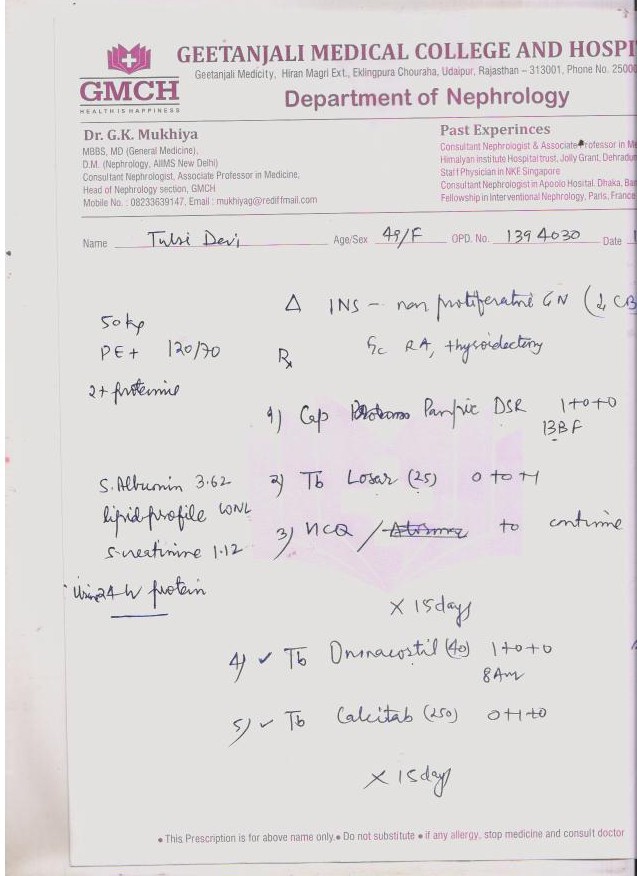 GEETANJALI MEDICAL COLLEGE AND HOSPI
Geetanjali Medicity, Hiran Magri Ext., Eklingpura Chouraha, Udaipur, Rajasthan – 313001, Phone No. 2500
GMCH
HEALTH IS HAPPINESS
Department of Nephrology
Dr. G.K. Mukhiya
MBBS, MD (General Medicine),
D.M. (Nephrology, AIIMS New Delhi)
Consultant Nephrologist, Associate Professor in Medicine,
Head of Nephrology section, GMCH
Mobile No. : 08233639147, Email : mukhiyag@rediffmail.com
Past Experinces
Consultant Nephrologist & Associate Professor in Me
Himalyan institute Hospital trust, Jolly Grant, Dehradun
Staff Physician in NKF Singapore
Consultant Nephrologist in Apoolo Hosital, Dhaka, Ban
Fellowship in Interventional Nephrology, Paris, France
Name Tulsi Devi Age/Sex 49/F OPD. No. 1394030 Date
Δ INS - non proliferative GN
50 kg
PE+ 120/70
Rx
RA, thyroidectomy
2+ proteinuria
1) Cap Panpric DSR 1+0+0
BBF
S. Albumin 3.62
2) Tb Losar (25) 0+0+1
lipid profile WNL
3) HCQ / to continue
S. creatinine 1.12
Urine 24 hr protein
X 15 days
4) ✓ Tb Omnacortil (40) 1+0+0
8 Am
5) ✓ Tb Calcitab (250) 0+1+0
X 15 days
• This Prescription is for above name only. • Do not substitute • if any allergy, stop medicine and consult doctor